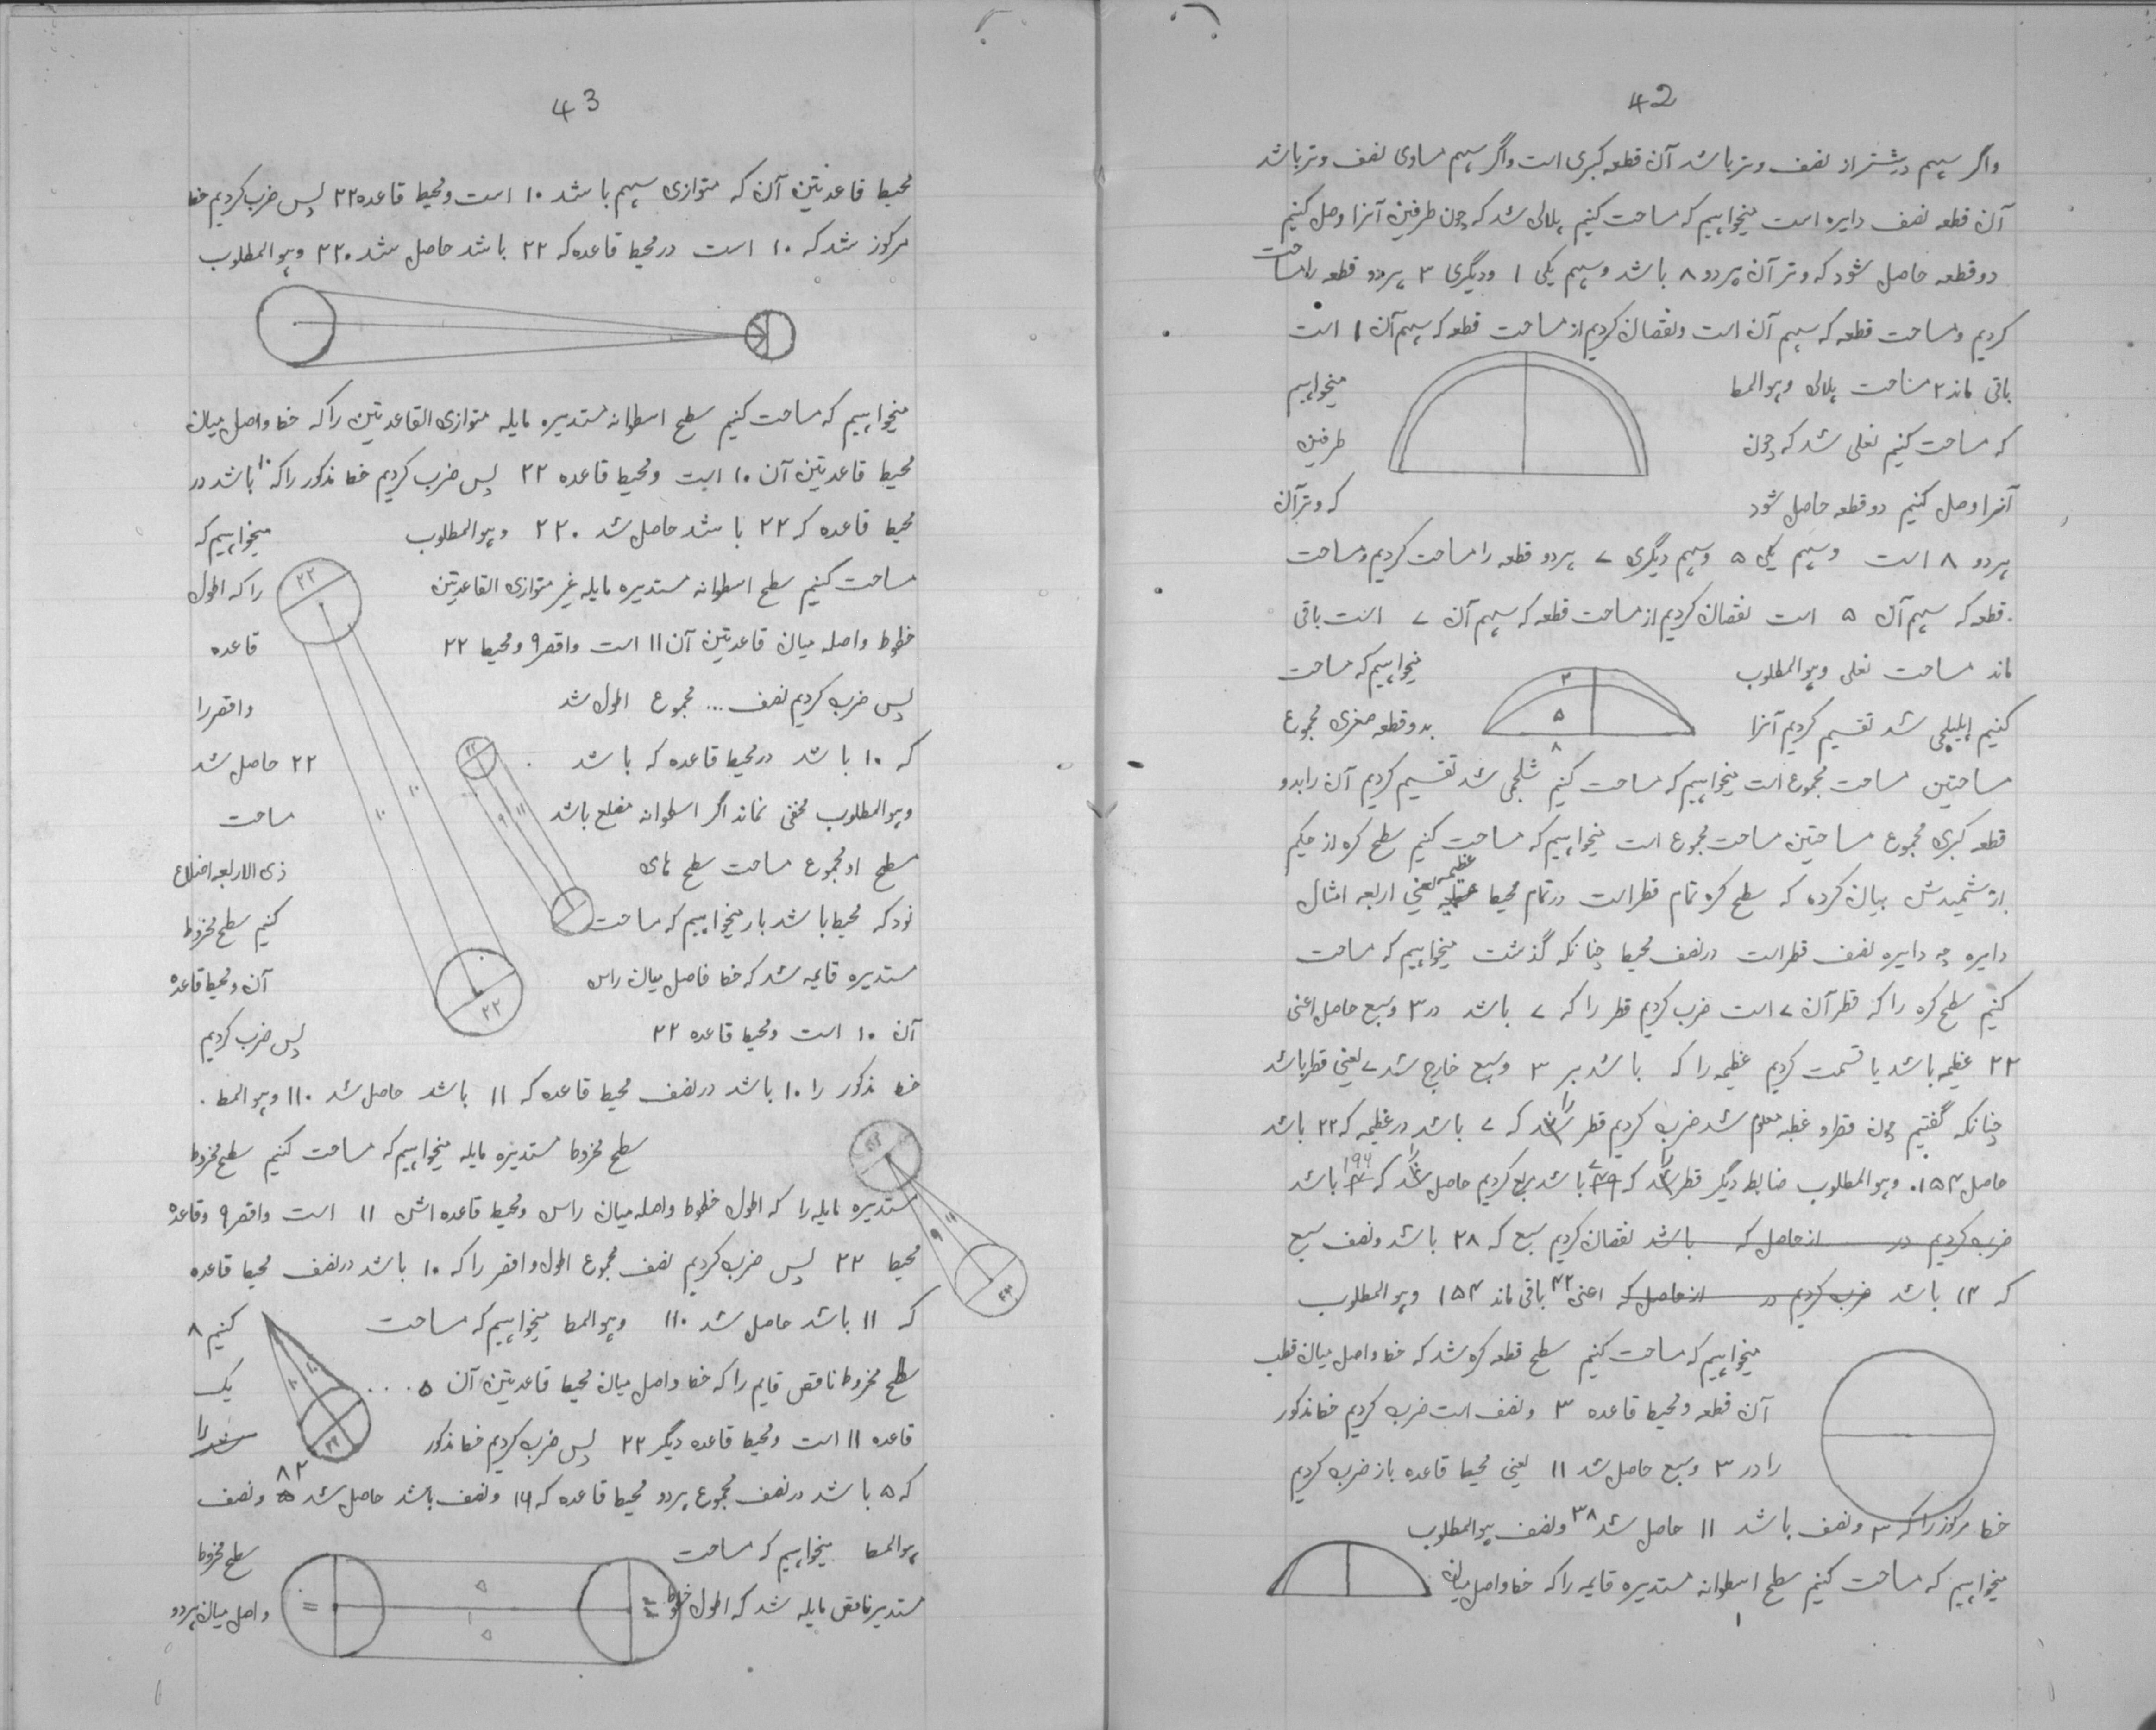 42
واگر سهم بیشتر از نصف وتر باشد آن قطعه کبری است واگر سهم مساوی نصف وتر باشد
آن قطعه نصف دایره است میخواهیم که مساحت کنیم هلالی شد که چون طرفین آنرا وصل کنیم
دو قطعه حاصل شود که وتر آن هر دو ۸ باشد و سهم یکی ۱ و دیگری ۳ هر دو قطعه را مساحت
کردیم و مساحت قطعه که سهم آن است و نقصان کردیم از مساحت قطعه که سهم آن ۱ است
باقی ماند ۲ مساحت هلالی وهو المط میخواهیم
که مساحت کنیم نعلی شد که چون طرفین
آنرا وصل کنیم دو قطعه حاصل شود که وتر آن
هر دو ۸ است و سهم یکی ۵ و سهم دیگری ۷ هر دو قطعه را مساحت کردیم و مساحت
قطعه که سهم آن ۵ است نقصان کردیم از مساحت قطعه که سهم آن ۷ است باقی
ماند مساحت نعلی وهو المطلوب میخواهیم که مساحت
کنیم اهلیلجی شد تقسیم کردیم آنرا بدو قطعه صغری مجموع
۲
۵
۸
مساحتین مساحت مجموع است میخواهیم که مساحت کنیم شلجمی شد تقسیم کردیم آن را بدو
قطعه کبری مجموع مساحتین مساحت مجموع است میخواهیم که مساحت کنیم سطح کره از حکیم
ارشمیدش بیان کرده که سطح کره تمام قطر است در تمام محیط عظیمه یعنی اربعه امثال
دایره چه دایره نصف قطر است در نصف محیط چنانکه گذشت میخواهیم که مساحت
کنیم سطح کره را که قطر آن ۷ است ضرب کردیم قطر را که ۷ باشد در ۳ وسبع حاصل اعنی
۲۲ عظیمه باشد یا قسمت کردیم عظیمه را که باشد بر ۳ وسبع خارج شد ۷ یعنی قطر باشد
چنانکه گفتیم چون قطر و عظیمه معلوم شد ضرب کردیم قطر را که ۷ باشد در عظیمه که ۲۲ باشد
حاصل ۱۵۴ وهو المطلوب ضابط دیگر قطر را که ۷ باشد مربع کردیم حاصل را که 196 باشد
ضرب کردیم در از حاصل که باشد نقصان کردیم سبع که ۲۸ باشد ونصف سبع
که ۱۴ باشد ضرب کردیم در از حاصل که اعنی ۴۲ باقی ماند ۱۵۴ وهو المطلوب
میخواهیم که مساحت کنیم سطح قطعه کره شد که خط واصل میان قطب
آن قطعه و محیط قاعده ۳ ونصف است ضرب کردیم خط مذکور
را در ۳ وسبع حاصل شد ۱۱ یعنی محیط قاعده باز ضرب کردیم
خط مرکوز را که ۳ ونصف باشد ۱۱ حاصل شد ۳۸ ونصف هو المطلوب
میخواهیم که مساحت کنیم سطح اسطوانه مستدیره قایمه را که خط واصل میان
۱
43
محیط قاعدتین آن که متوازی سهم باشد ۱۰ است و محیط قاعده ۲۲ پس ضرب کردیم خط
مرکوز شد که ۱۰ است در محیط قاعده که ۲۲ باشد حاصل شد ۲۲۰ وهو المطلوب
میخواهیم که مساحت کنیم سطح اسطوانه مستدیره مایله متوازی القاعدتین را که خط واصل میان
محیط قاعدتین آن ۱۰ است و محیط قاعده ۲۲ پس ضرب کردیم خط مذکور را که ۱۰ باشد در
محیط قاعده که ۲۲ باشد حاصل شد ۲۲۰ وهو المطلوب میخواهیم که
مساحت کنیم سطح اسطوانه مستدیره مایله غیر متوازی القاعدتین را که اطول
خطوط واصله میان قاعدتین آن ۱۱ است واقصر ۹ و محیط ۲۲ قاعده
پس ضرب کردیم نصف ... مجموع اطول شد واقصر را
که ۱۰ باشد در محیط قاعده که باشد ۲۲ حاصل شد
وهو المطلوب مخفی نماند اگر اسطوانه مضلع باشد مساحت
سطح او مجموع مساحت سطح های ذی الاربعه اضلاع
بود که محیط باشد بار میخواهیم که مساحت کنیم سطح مخروط
مستدیره قایمه شد که خط فاصل میان راس آن و محیط قاعده
آن ۱۰ است و محیط قاعده ۲۲ پس ضرب کردیم
خط مذکور را ۱۰ باشد در نصف محیط قاعده که ۱۱ باشد حاصل شد ۱۱۰ وهو المط
سطح مخروط مستدیره مایله میخواهیم که مساحت کنیم سطح مخروط
مستدیره مایله را که اطول خطوط واصله میان راس و محیط قاعده اش ۱۱ است واقصر ۹ وقاعده
محیط ۲۲ پس ضرب کردیم نصف مجموع اطول واقصر را که ۱۰ باشد در نصف محیط قاعده
که ۱۱ باشد حاصل شد ۱۱۰ وهو المط میخواهیم که مساحت کنیم ۸
سطح مخروط ناقص قایم را که خط واصل میان محیط قاعدتین آن ۵ .... یک
قاعده ۱۱ است و محیط قاعده دیگر ۲۲ پس ضرب کردیم خط مذکور را
که ۵ باشد در نصف مجموع هر دو محیط قاعده که ۱۶ ونصف باشد حاصل شد ۸۲ ونصف
هو المط میخواهیم که مساحت سطح مخروط
مستدیر ناقص مایله شد که اطول خطوط واصل میان هر دو